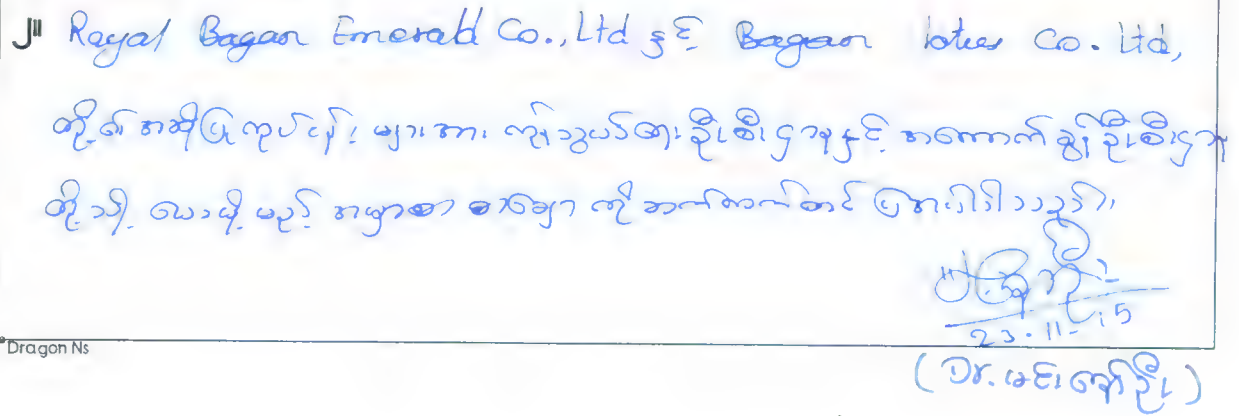 ၂။ Royal Bagan Emerald Co., Ltd နှင့် Bagan lotus Co. Ltd,
တို့၏ အဆိုပြုလုပ်ငန်းများအား ကုန်သွယ်ရေးဦးစီးဌာနနှင့် အကောက်ခွန်ဦးစီးဌာန
တို့သို့ ပေးပို့မည့် အမှာစာ စာချောကို ဆက်လက်တင်ပြအပ်ပါသည်။
23.11.15
Dragon Ns
(Dr. မင်းဇော်ဦး)